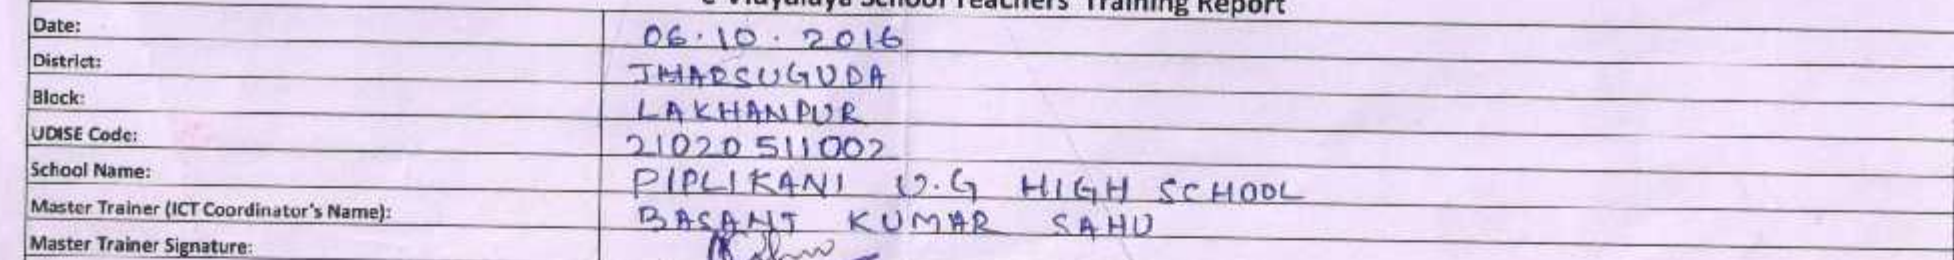 e-Vidyalaya School Teachers' Training Report
Date: 06.10.2016
District: JHARSUGUDA
Block: LAKHANPUR
UDISE Code: 21020511002
School Name: PIPLIKANI U.G HIGH SCHOOL
Master Trainer (ICT Coordinator's Name): BASANT KUMAR SAHU
Master Trainer Signature: